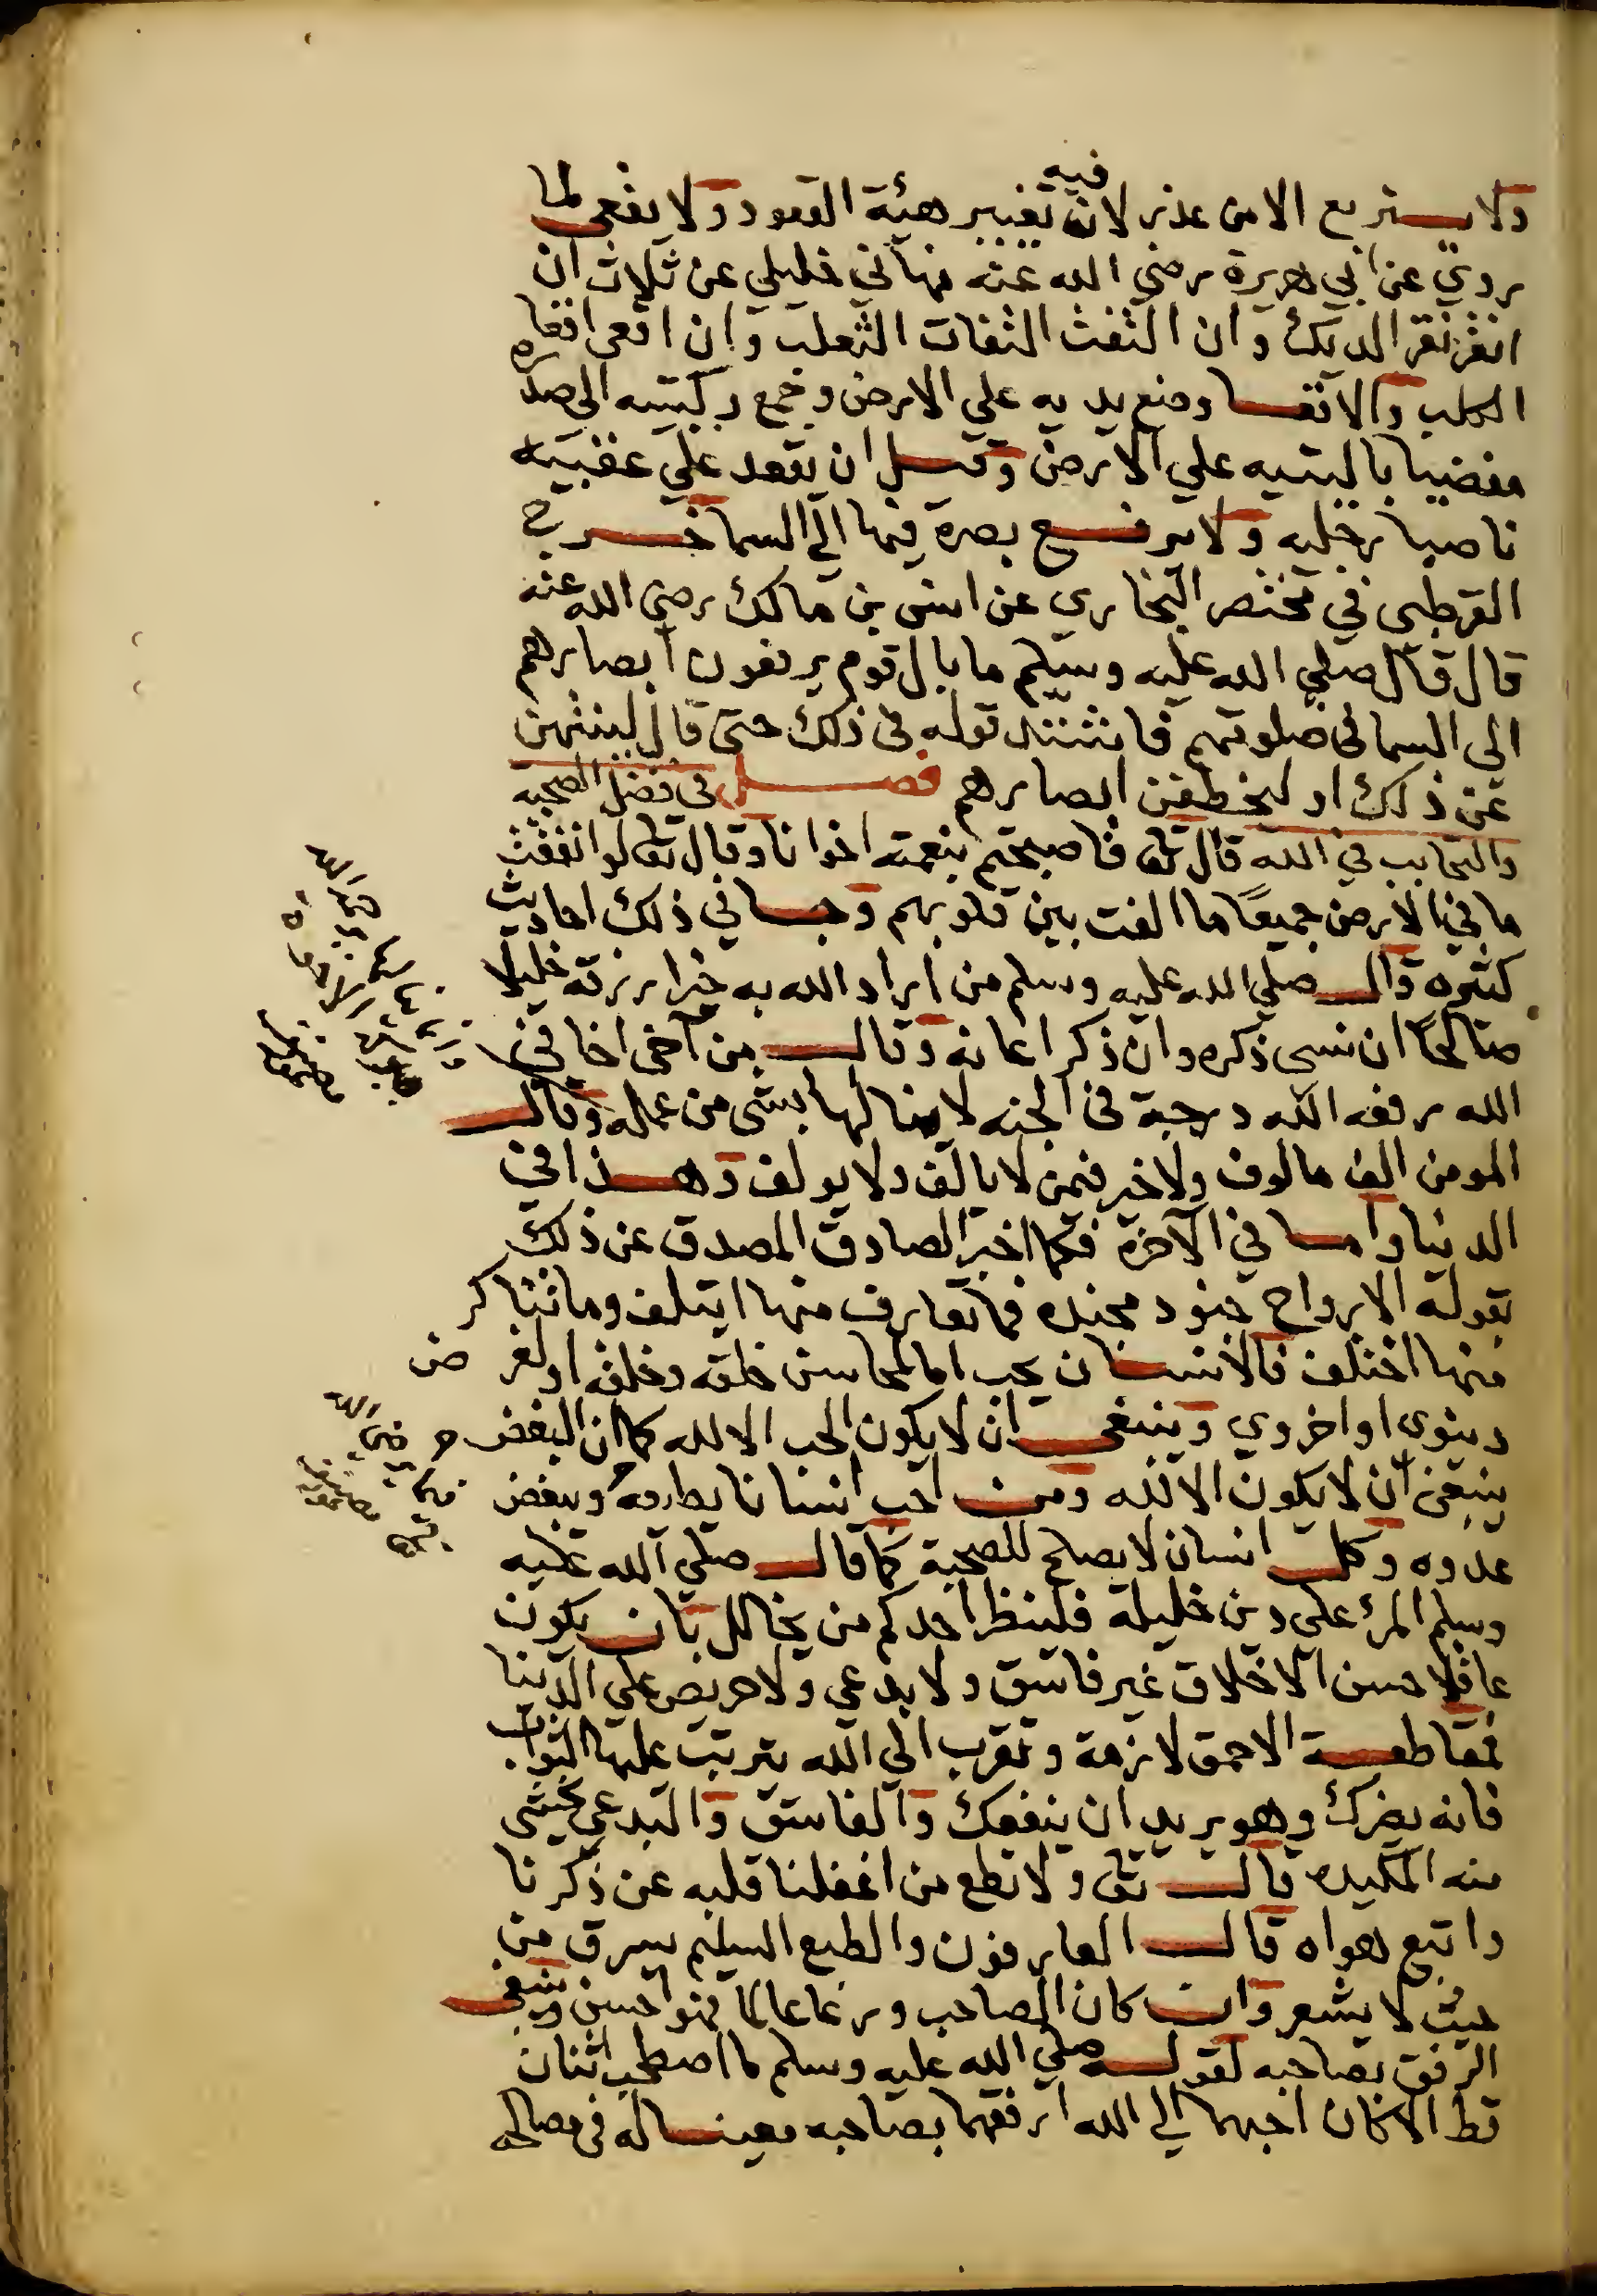 ولا يستربع الا من عذر لان فيه تغيير هيئة القعود ولا يقعى لما
روي عن ابي هريرة رضي الله عنه نهاني خليلي عن ثلاث ان
انقر نقر الديك وان التفت التفات الثعلب وان اقعى اقعا
الكلب والاقعا وضع يديه علي الارض وجمع ركبتيه الى صدره
مفضيا باليتيه علي الارض وقيل ان يقعد علي عقبيه
ناصبا رجليه ولا يرفع بصره فيها الي السما خرج
القرطبى في مختصر البخاري عن انس بن مالك رضي الله عنه
قال قال صلي الله عليه وسلم ما بال قوم يرفعون ابصارهم
الى السما فى صلوتهم فاشتد قوله فى ذلك حتى قال لينتهن
عن ذلك او لتخطفن ابصارهم فصل في فضل الصحبة
والتحابب في الله قال تعالى فاصبحتم بنعمته اخوانا وقال تعالى لو انفقت
ما في الارض جميعًا ما الفت بين قلوبهم وجا في ذلك احاديث
كثيره قال صلي الله عليه وسلم من اراد الله به خيرا رزقه خليلا
صالحًا ان نسى ذكره وان ذكر اعانه وقال من آخى اخا في
الله رفعه الله درجة فى الجنه لا ينالها بشى من عمله وقال
المومن الف مالوف ولا خير فيمن لا يالف ولا يولف وهذا في
الدنيا واما في الآخرة فكما اخبر الصادق المصدق عن ذلك
بقوله الارواح جنود مجنده فما تعارف منها ايتلف وما تناكر
منها اختلف فالانسان يحب اما لمحاسن خلقه وخلقه او لغرض
دنيوى او اخروي وينبغى ان لا يكون الحب الا لله كما ان البغض
ينبغى ان لا يكون الا لله ومن احب انسانا يطاوعه ويبغض
عدوه وكل انسان لا يصلح للصحبة كما قال صلي الله عليه
وسلم المرئ على دين خليله فلينظر احدكم من يخالل بان يكون
عاقلا حسن الاخلاق غير فاسق ولا بدعى ولا حريص علي الدنيا
فمقاطعة الاحمق لازمة وتقرب الي الله يترتب عليها الثواب
فانه يضرك وهو يريد ان ينفعك والفاسق والبدعي يخشى
منه المكيده قال تعالى ولا تطع من اغفلنا قلبه عن ذكرنا
واتبع هواه قال العارفون والطبع السليم يسرق من
حيث لا يشعر وان كان المصاحب ورعا عالما فهو احسن وينبغى
الرفق بصاحبه لقوله صلي الله عليه وسلم ما اصطحب اثنان
قط الا كان احبهما الي الله ارفقهما بصاحبه معينا له فى مصالحه